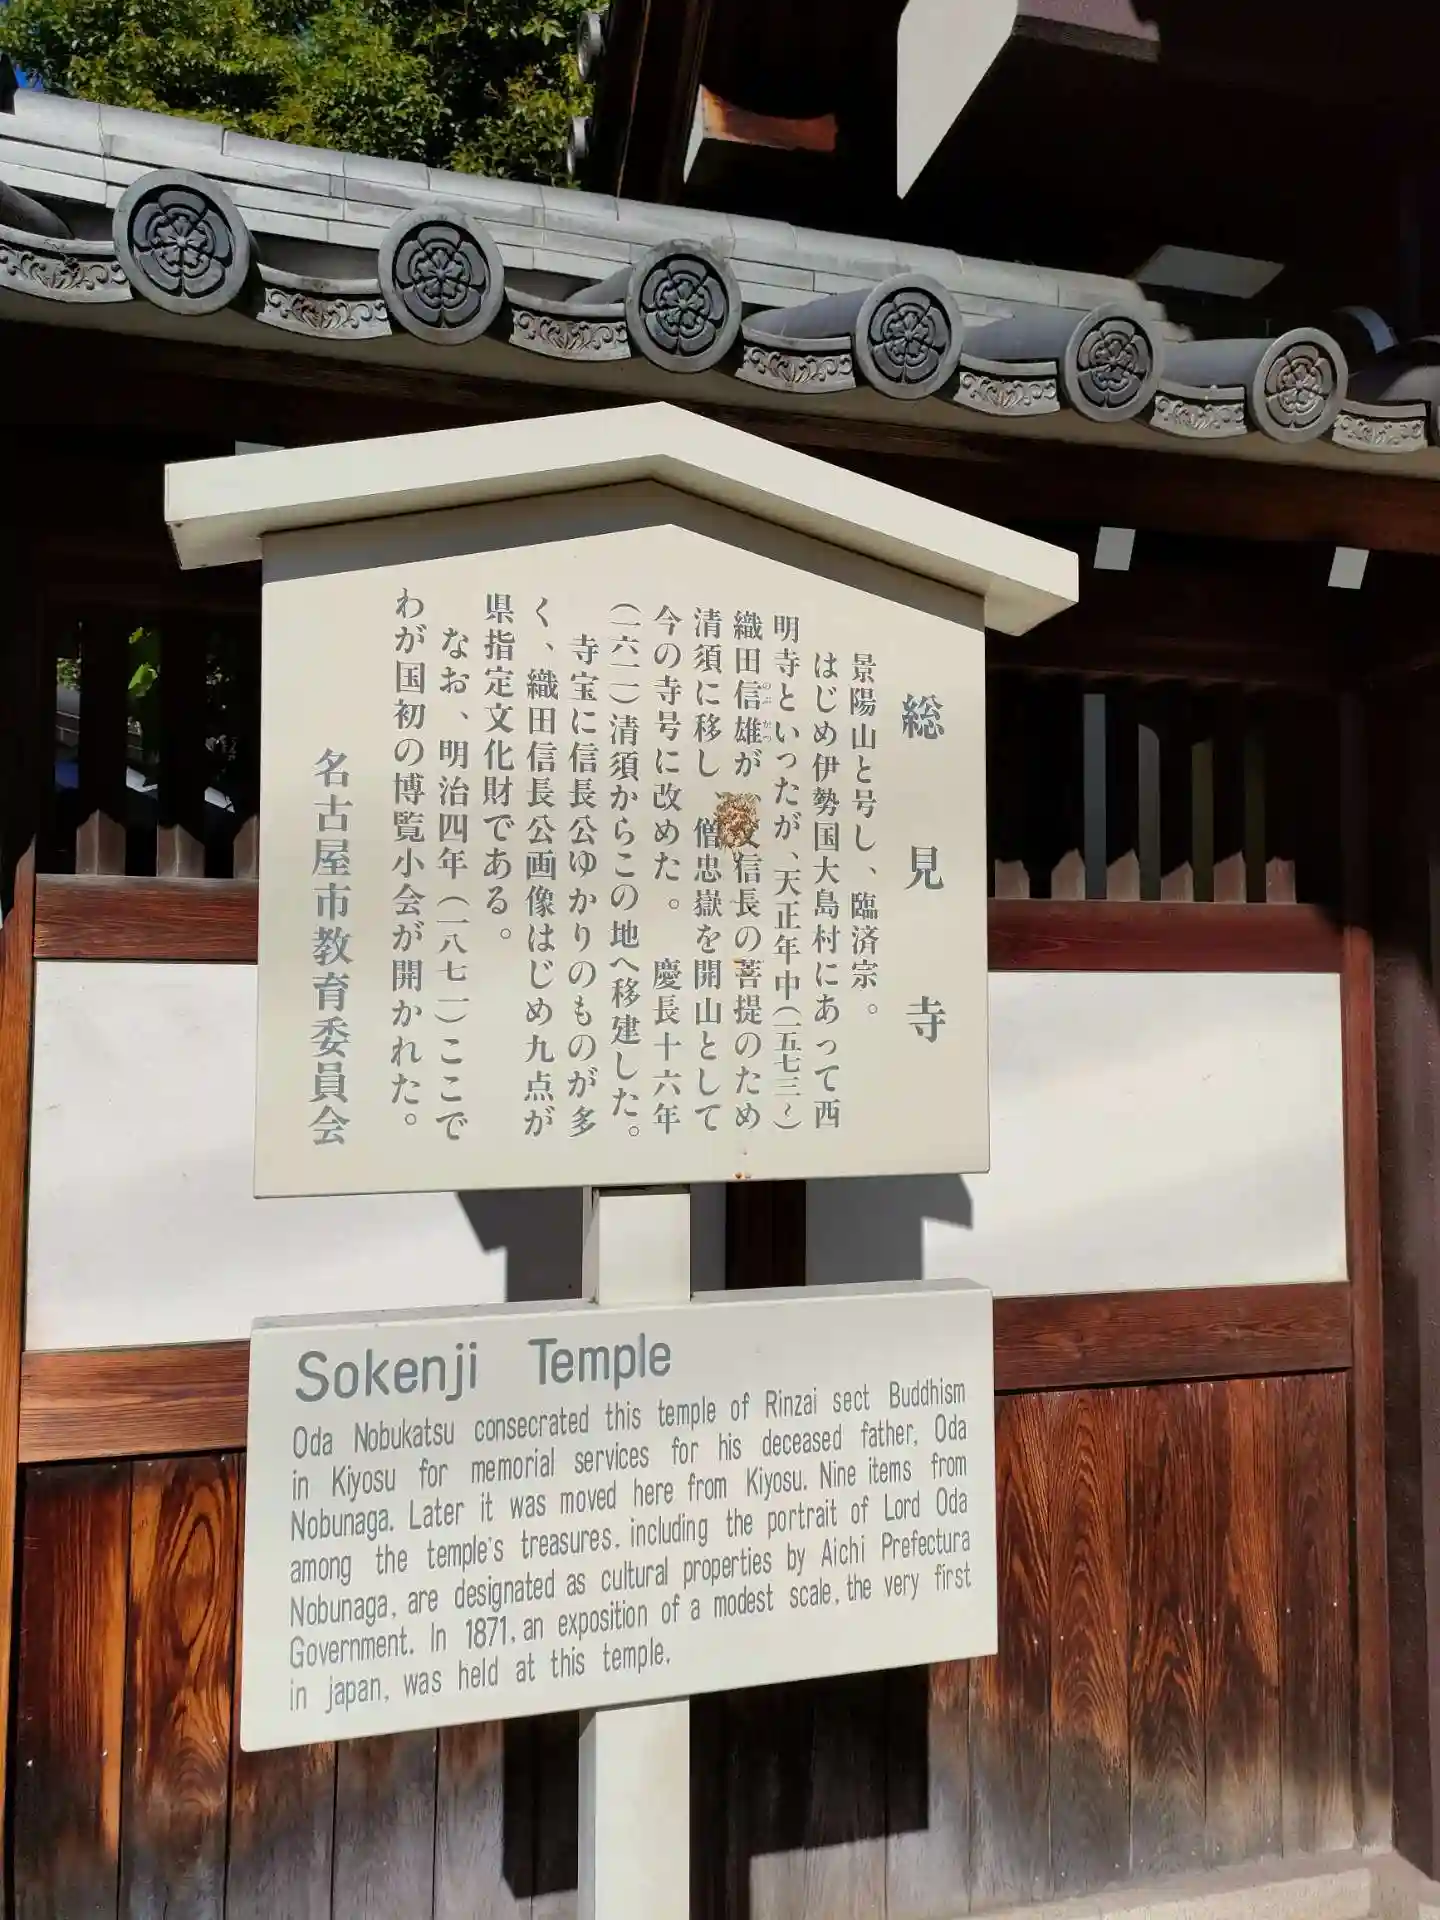 総見寺
景陽山と号し、臨済宗。
はじめ伊勢国大島村にあって西
明寺といったが、天正年中(一五七三~)
織田信雄が、父信長の菩提のため
のぶかつ
清須に移し 僧忠嶽を開山として
今の寺号に改めた。 慶長十六年
(一六一一)清須からこの地へ移建した。
寺宝に信長公ゆかりのものが多
く、織田信長公画像はじめ九点が
県指定文化財である。
なお、明治四年(一八七一)ここで
わが国初の博覧小会が開かれた。
名古屋市教育委員会
Sokenji Temple
Oda Nobukatsu consecrated this temple of Rinzai sect Buddhism
in Kiyosu for memorial services for his deceased father, Oda
Nobunaga. Later it was moved here from Kiyosu. Nine items from
among the temple's treasures, including the portrait of Lord Oda
Nobunaga, are designated as cultural properties by Aichi Prefectura
Government. In 1871, an exposition of a modest scale, the very first
in japan, was held at this temple.